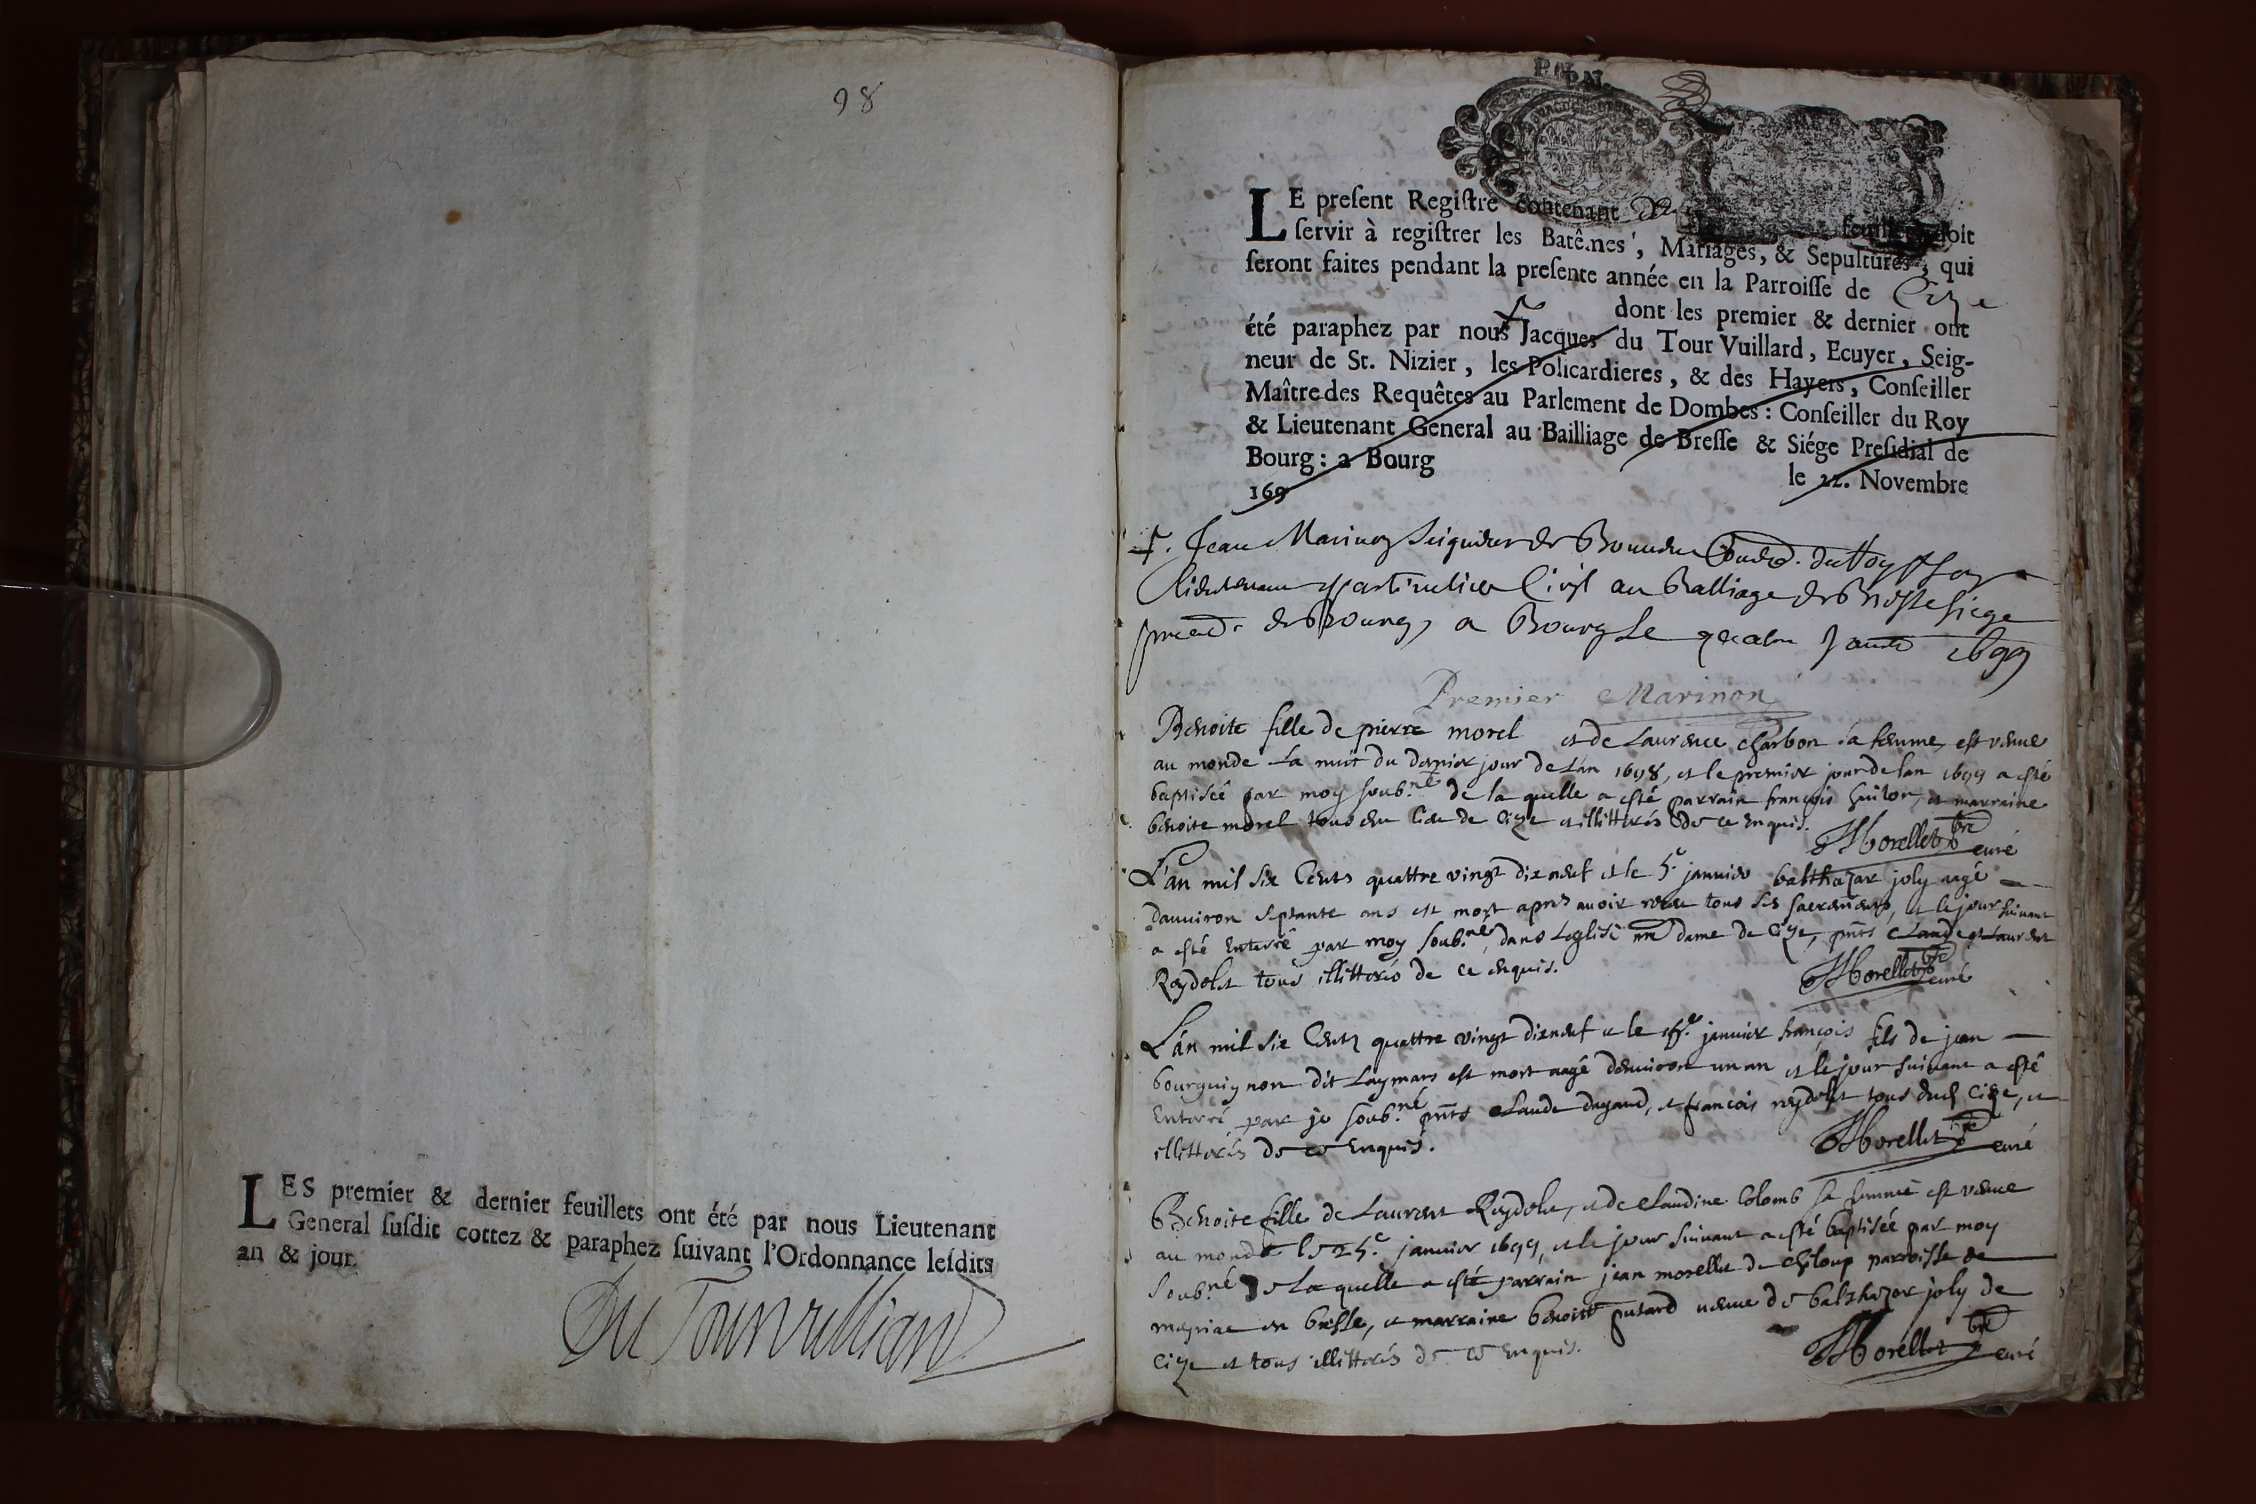 98
LES premier & dernier feuillets ont été par nous Lieutenant
General ſuſdit cottez & paraphez ſuivant l'Ordonnance leſdits
an & jour.
Du Tour Vulliard
LE preſent Regiſtre contenant feuillets doit
ſervir à regiſtrer les Batêmes, Mariages, & Sepultures, qui
ſeront faites pendant la preſente année en la Parroiſſe de Cize
dont les premier & dernier ont
été paraphez par nous Jacques du Tour Vuillard, Ecuyer, Seig-
neur de St. Nizier, les Policardieres, & des Hayers, Conſeiller
Maître des Requêtes au Parlement de Dombes: Conſeiller du Roy
& Lieutenant General au Bailliage de Breſſe & Siége Preſidial de
Bourg: a Bourg le 22. Novembre
169
Jean Marinon Seigneur de du Roy
Lieutenant particulier Civil au Balliage de Bresse siege
de Bourg, a Bourg le 1699
Premier Marinon
Benoite fille de pierre morel et de Laurence charbon sa femme, est venue
au monde la nuit du dernier jour de l'an 1698, et le premier jour de lan 1699 a esté
baptisée par moy soub.né de la quelle a esté parrain françois guilon, et marraine
benoite morel tous du lieu de Cize et illitterés de ce enquis.
Morellet pbre curé
L'an mil six Cents quattre vingt dix neuf et le 5e janvier balthazar joly aagé
dauviron septante ans est mort apres avoir receu tous ses sacremens, et le jour suivant
a esté enterré par moy soub.né, dans Leglise nre dame de Cize, pnts Claude et Laurent
Reydelet tous illitterés de ce enquis.
Morellet pbre curé
L'an mil six Cents quattre vingt dix neuf et le janvier françois fils de jean
bourguignon dit Laymars est mort aagé denviron un an et le jour suivant a esté
enterré par je soub.né pnts Claude dagand, et françois reydelet tous dud Cize, et
illitterés de ce enquis.
Morellet pbre curé
Benoite fille de Laurent Reydelet, et de Claudine Colomb sa femme est venue
au monde le 25e janvier 1699, et le jour suivant a esté baptisée par moy
soub.né de la quelle a esté parrain jean morellet de chiloup parroisse de
en bresse, et marraine benoite putard veuve de balthazar joly de
Cize et tous illitterés de ce enquis.
Morellet pbre curé